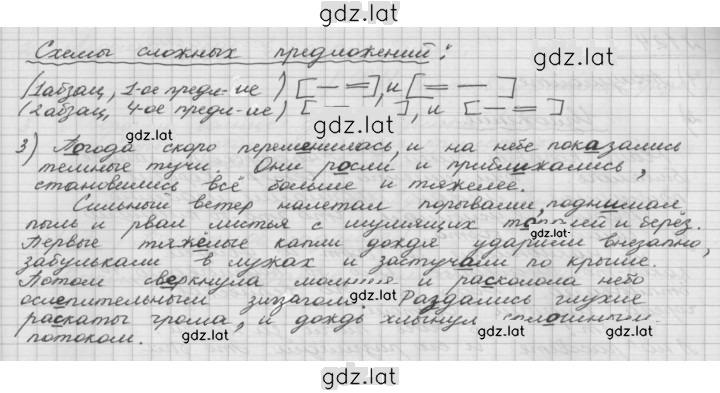 gdz.lat
Схемы сложных предложений:
gdz.lat
(1абзац, 1-ое предл-ие) [— =], и [= —]
(2абзац, 4-ое предл-ие) [ — ], и [— =]
gdz.lat
gdz.lat
3) Погода скоро переменилась, и на небе показались
gdz.lat
темные тучи. Они росли и приближались,
становились всё больше и тяжелее.
Сильный ветер налетал порывами, поднимал
пыль и рвал листья с шумящих тополей и берёз.
gdz.lat
Первые тяжёлые капли дождя ударили внезапно,
забулькали в лужах и застучали по крыше.
Потом сверкнула молния и расколола небо
ослепительным зигзагом. Раздались глухие
gdz.lat
раскаты грома, и дождь хлынул сплошным
gdz.lat gdz.lat
потоком.
gdz.lat